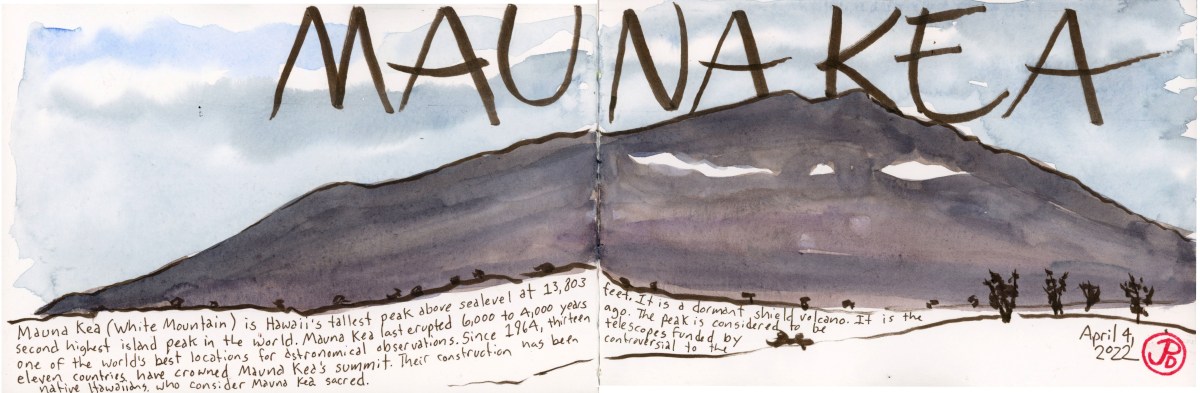 MAUNA KEA
Mauna Kea (White Mountain) is Hawaii's tallest peak above sealevel at 13,803 feet. It is a dormant shield volcano. It is the
second highest island peak in the world. Mauna Kea last erupted 6,000 to 4,000 years ago. The peak is considered to be
one of the world's best locations for astronomical observations. Since 1964, thirteen telescopes funded by
eleven countries have crowned Mauna Kea's summit. Their construction has been controversial to the
native Hawaiians, who consider Mauna Kea sacred.
April 4,
2022